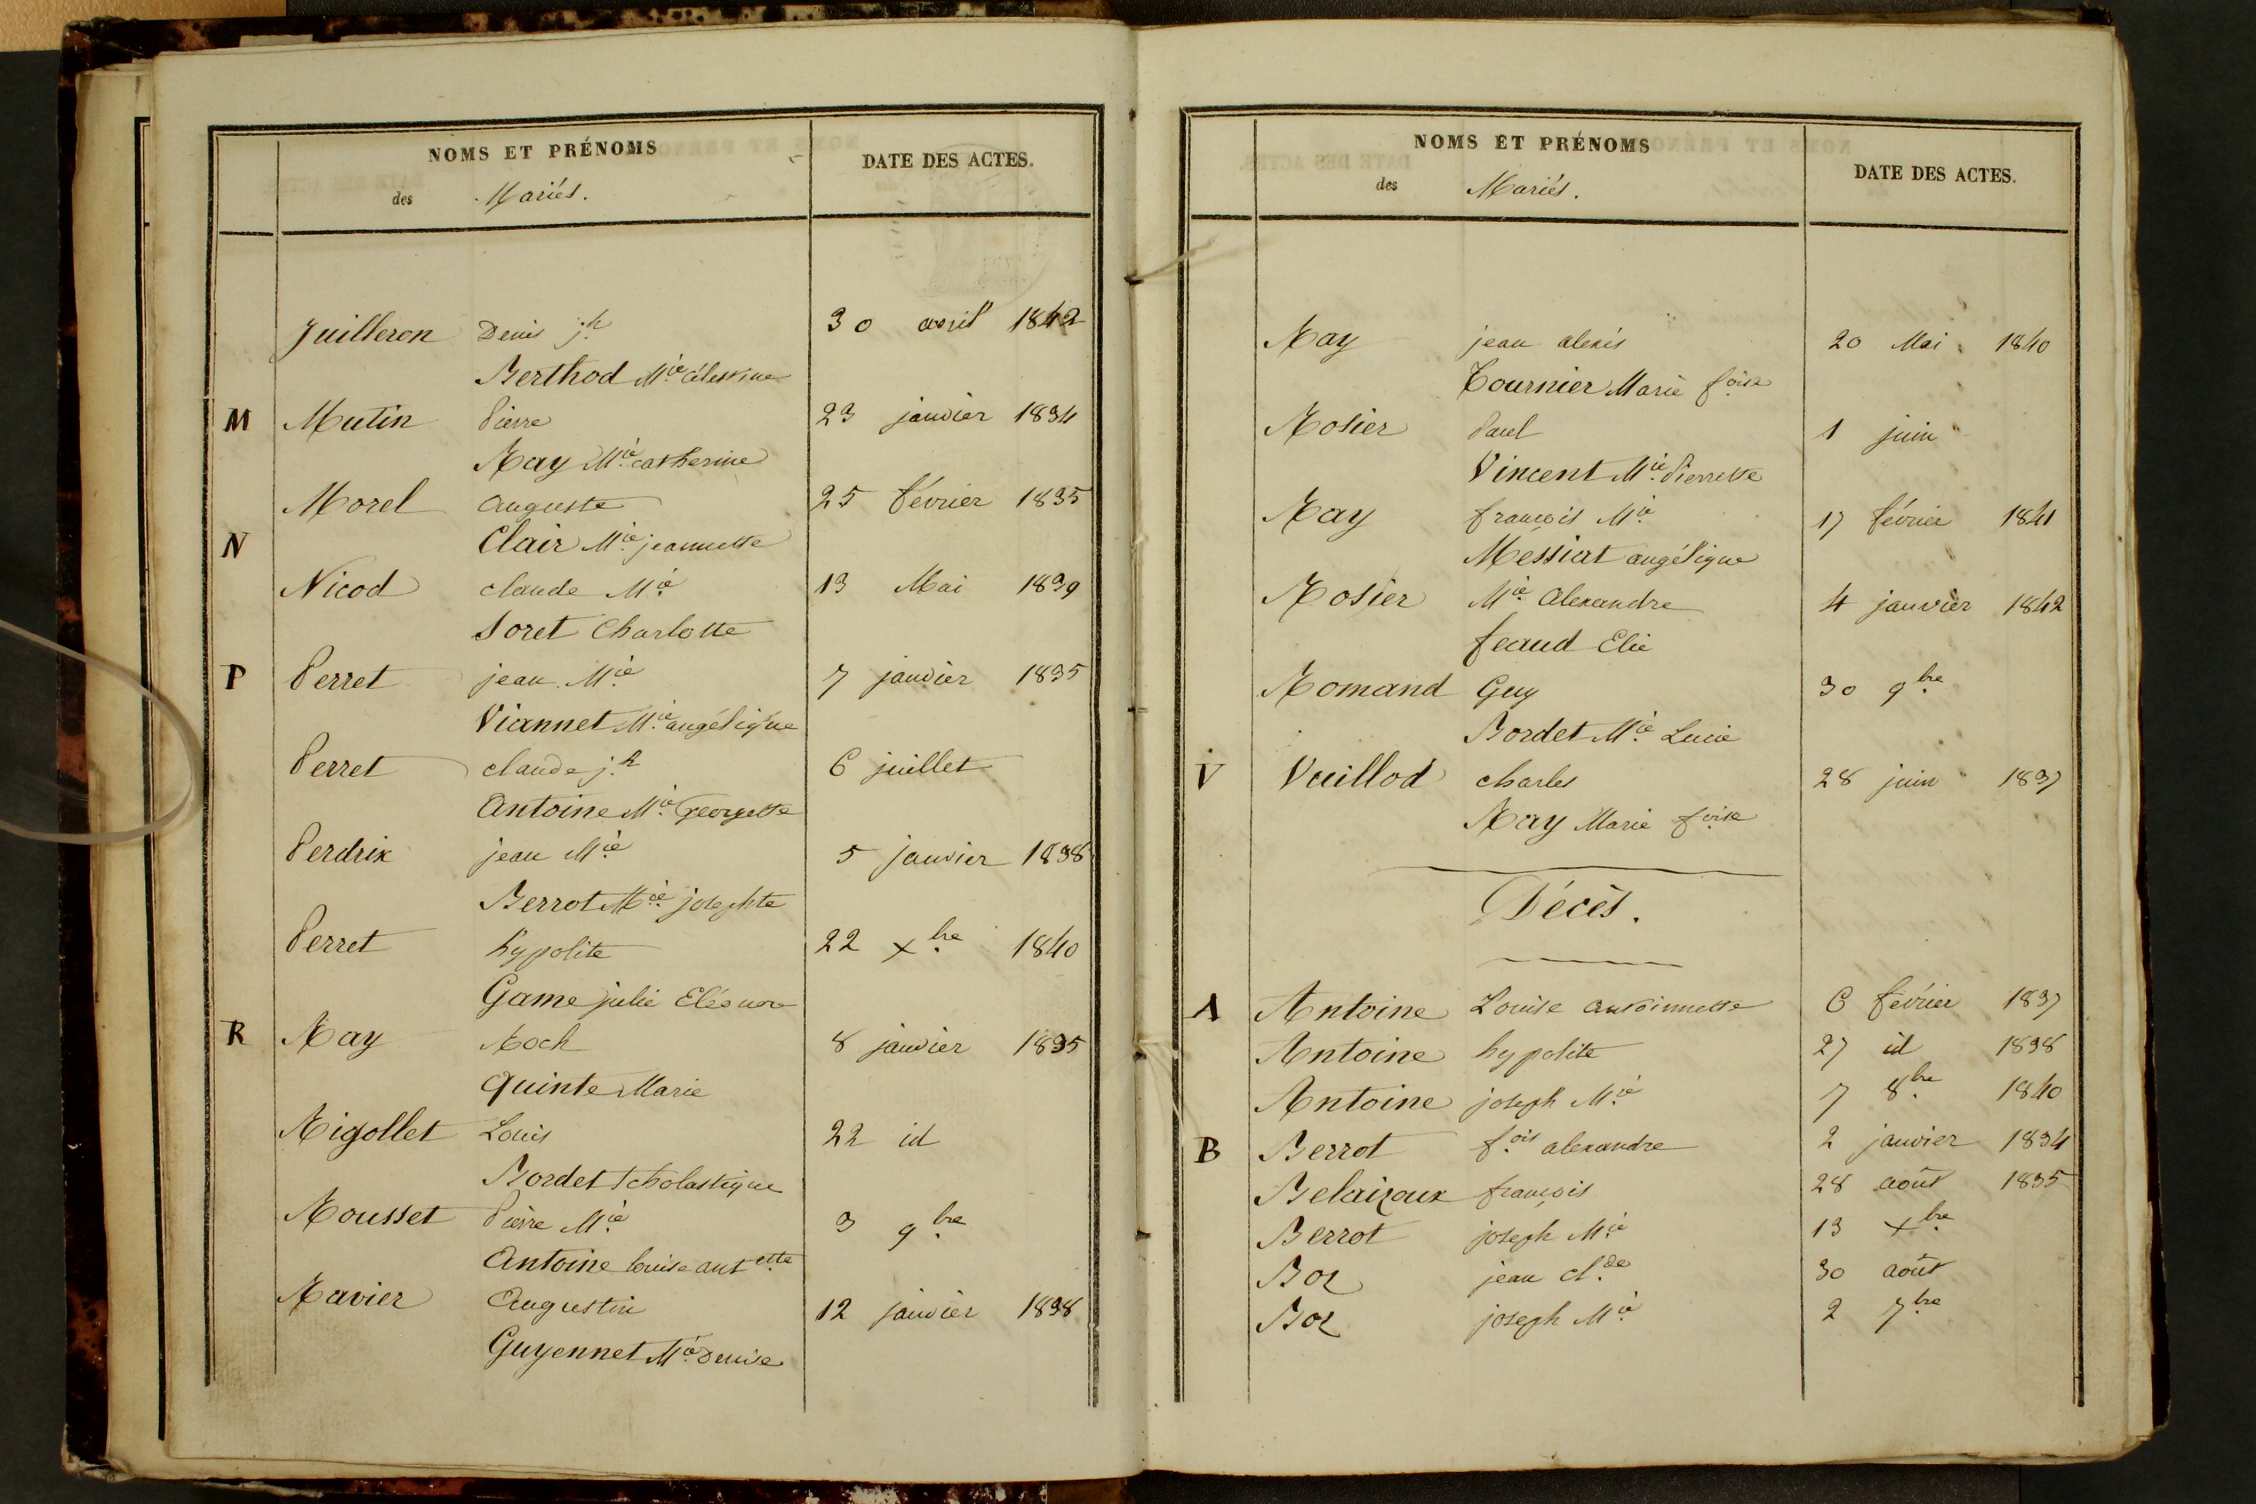 NOMS ET PRÉNOMS
des Mariés.
DATE DES ACTES.
Juilleron Denis j.h 30 avril 1842
Berthod M.ie Célestine
M Mutin Pierre 23 janvier 1834
Ray M.ie catherine
Morel Auguste 25 février 1835
N Clair M.ie jeannette
Nicod claude M.ie 13 Mai 1839
Soret Charlotte
P Perret jean M.ie 7 janvier 1835
Viannet M.ie angélique
Perret claude j.h 6 juillet
Antoine M.ie Georgette
Perdrix jean M.ie 5 janvier 1838
Berrot M.ie josephte
Perret hypolite 22 x.bre 1840
Game julie Eléonore
R Ray Roch 8 janvier 1835
Quinte Marie
Rigollet Louis 22 id
Bordet Scholastique
Rousset Pierre M.ie 3 9.bre
Antoine louise ant.ette
Ravier Augustin 12 janvier 1838
Guyennet M.ie Denise
NOMS ET PRÉNOMS
des Mariés.
DATE DES ACTES.
Ray jean alexis 20 Mai 1840
Tournier Marie f.oise
Rosier Paul 1 juin
Vincent M.ie Pierrette
Ray françois M.ie 17 février 1841
Messiat angélique
Rosier M.ie Alexandre 4 janvier 1842
feaud Elie
Romand Guy 30 9.bre
Bordet M.ie Lucie
V Vuillod charles 28 juin 1837
Ray Marie f.oise
Décès.
A Antoine Louise antoinnette 6 février 1837
Antoine hypolite 27 id 1838
Antoine joseph M.ie 7 8.bre 1840
B Berrot f.ois alexandre 2 janvier 1834
Belaizoux françois 28 août 1835
Berrot joseph M.ie 13 x.bre
Boz jean cl.de 30 août
Boz joseph M.ie 2 7.bre